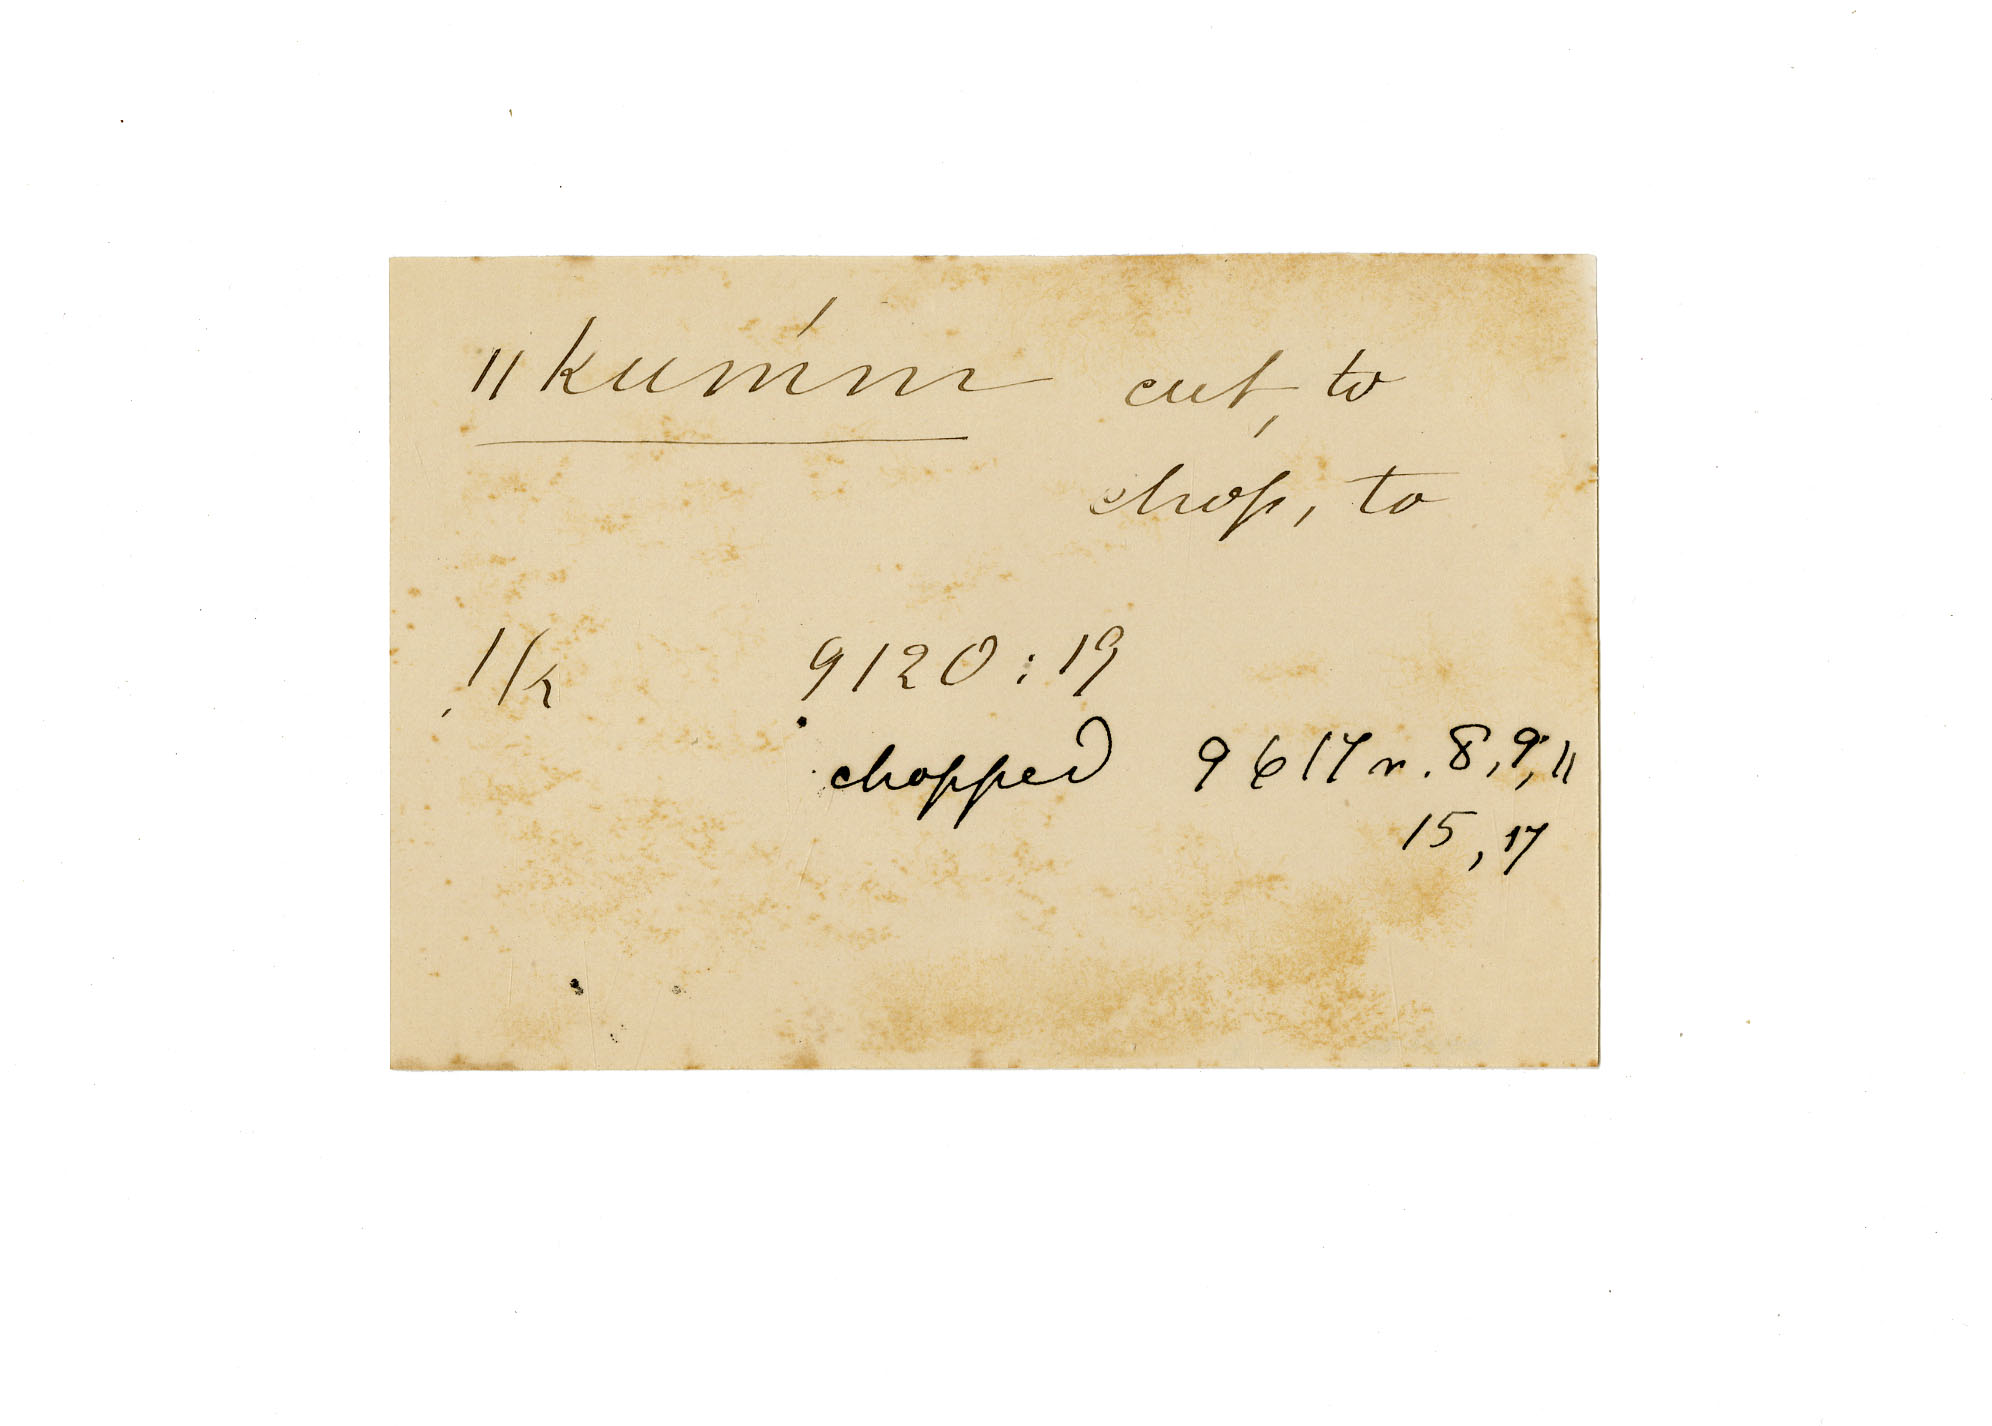 ǁkum'm cut, to
chop, to
!k 9120:19
chopped 9617 r. 8, 9, 11
15, 17